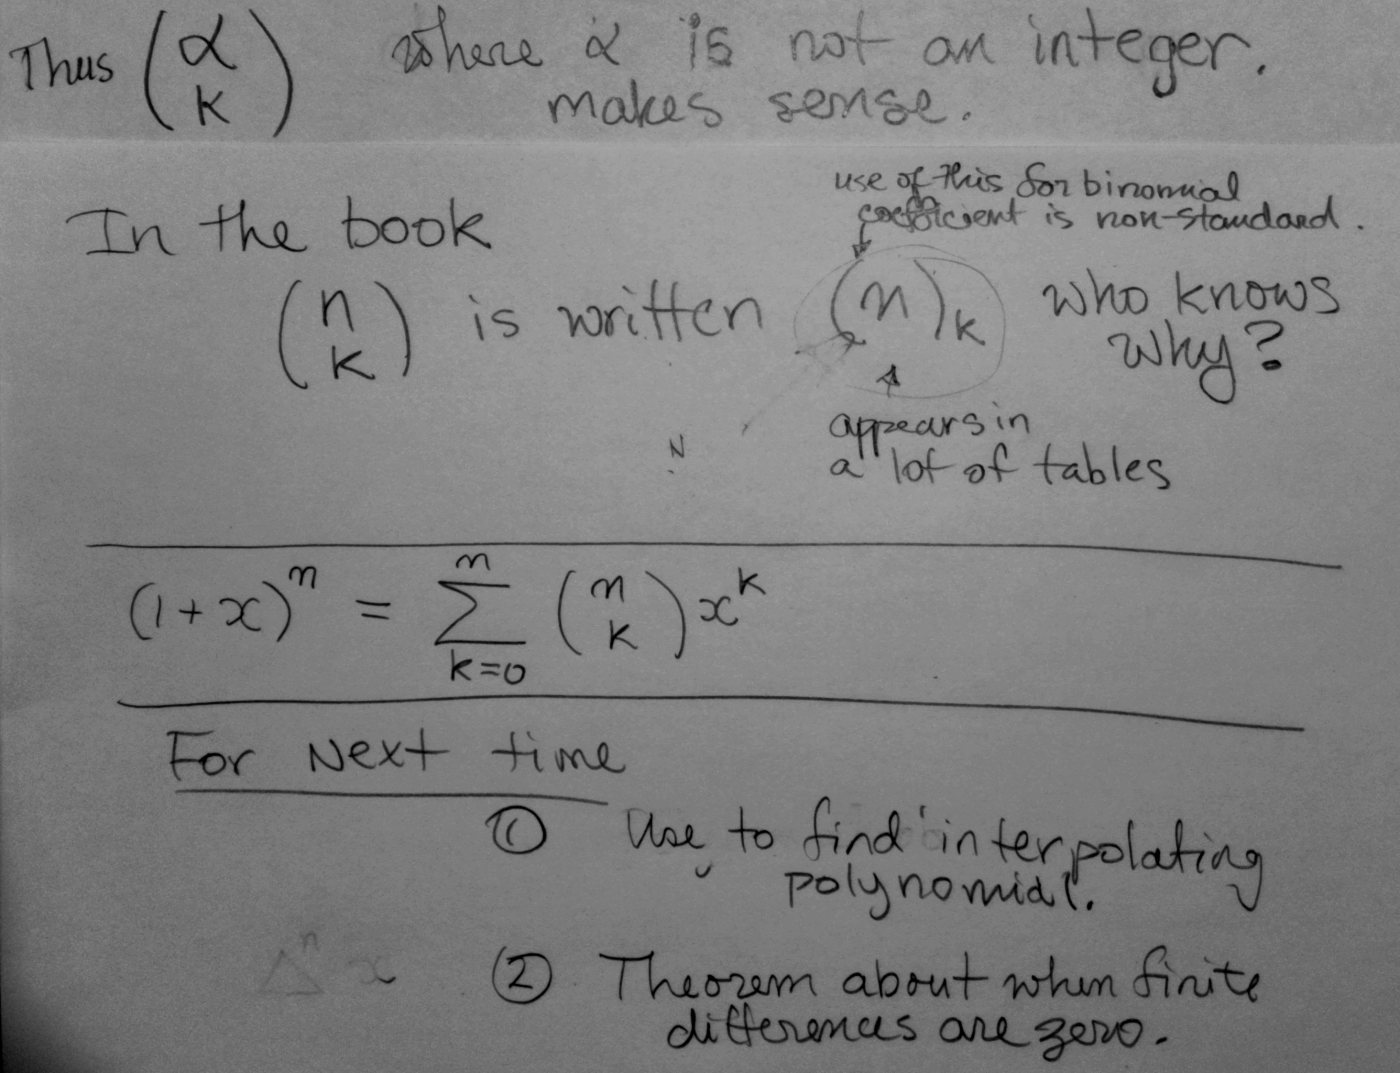 Thus (α k) where α is not an integer.
makes sense.
use of this for binomial
coefficient is non-standard.
In the book
(n k) is written (n)_k who knows
why?
appears in
a lot of tables
N
(1+x)^n = Σ_{k=0}^{n} (n k) x^k
For Next time
① Use to find interpolating
polynomial.
Δ^n x
② Theorem about when finite
differences are zero.